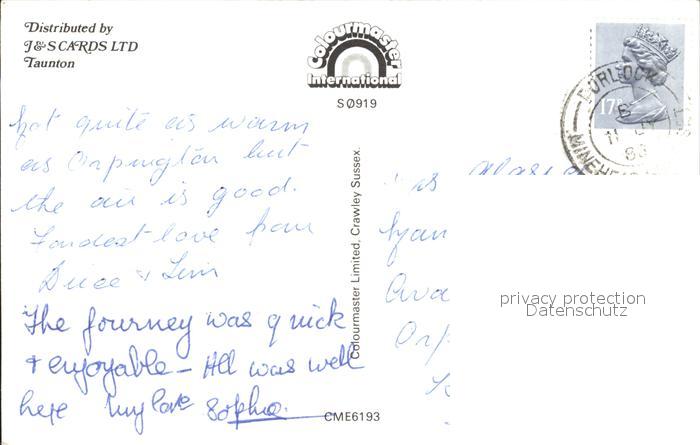 Distributed by
J&S CARDS LTD
Taunton
Colourmaster
International
SØ919
not quite as warm
as Orpington but
the air is good.
Fondest love from
The journey was quick
& enjoyable – All was well
here my love Sophie.
Colourmaster Limited, Crawley Sussex.
CME6193
17P
PORLOCK
MINEHEAD
11
Ava
Orp
privacy protection
Datenschutz